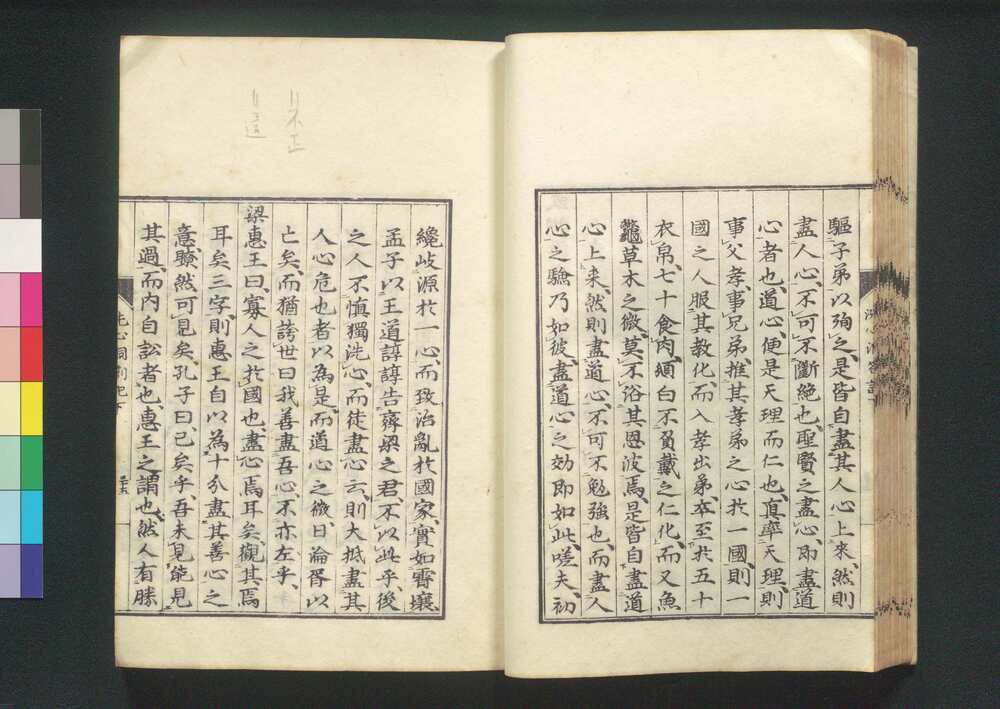 驅子弟以殉之、是皆自盡其人心上來、然則
盡人心、不可不斷絕也、聖賢之盡心、即盡道
心者也、道心便是天理而仁也、真率天理、則
事父孝、事兄弟、推其孝弟之心於一國、則一
國之人服其教化、而入孝出弟、卒至於五十
衣帛、七十食肉、頒白不負戴之仁化、而又魚
鼈草木之微、莫不浴其恩波焉、是皆自盡道
心上來、然則盡道心、不可不勉強也、而盡人
心之驗乃如彼、盡道心之効即如此、嗟夫、初
纔岐源於一心、而致治亂於國家、實如霄壤、
孟子以王道諄諄告齊梁之君、不以此乎、後
之人不慎獨洗心、而徒盡心云、則大抵盡其
人心危也者以為是、而道心之微、日淪胥以
亡矣、而猶誇世曰我善盡吾心、不亦左乎、
梁惠王曰、寡人之於國也、盡心焉耳矣、觀其焉
耳矣三字、則惠王自以為十分盡其善心之
意、瞭然可見矣、孔子曰已矣乎、吾未見能見
其過、而內自訟者也、惠王之謂也、然人有勝
洗心洞劄記下
不正